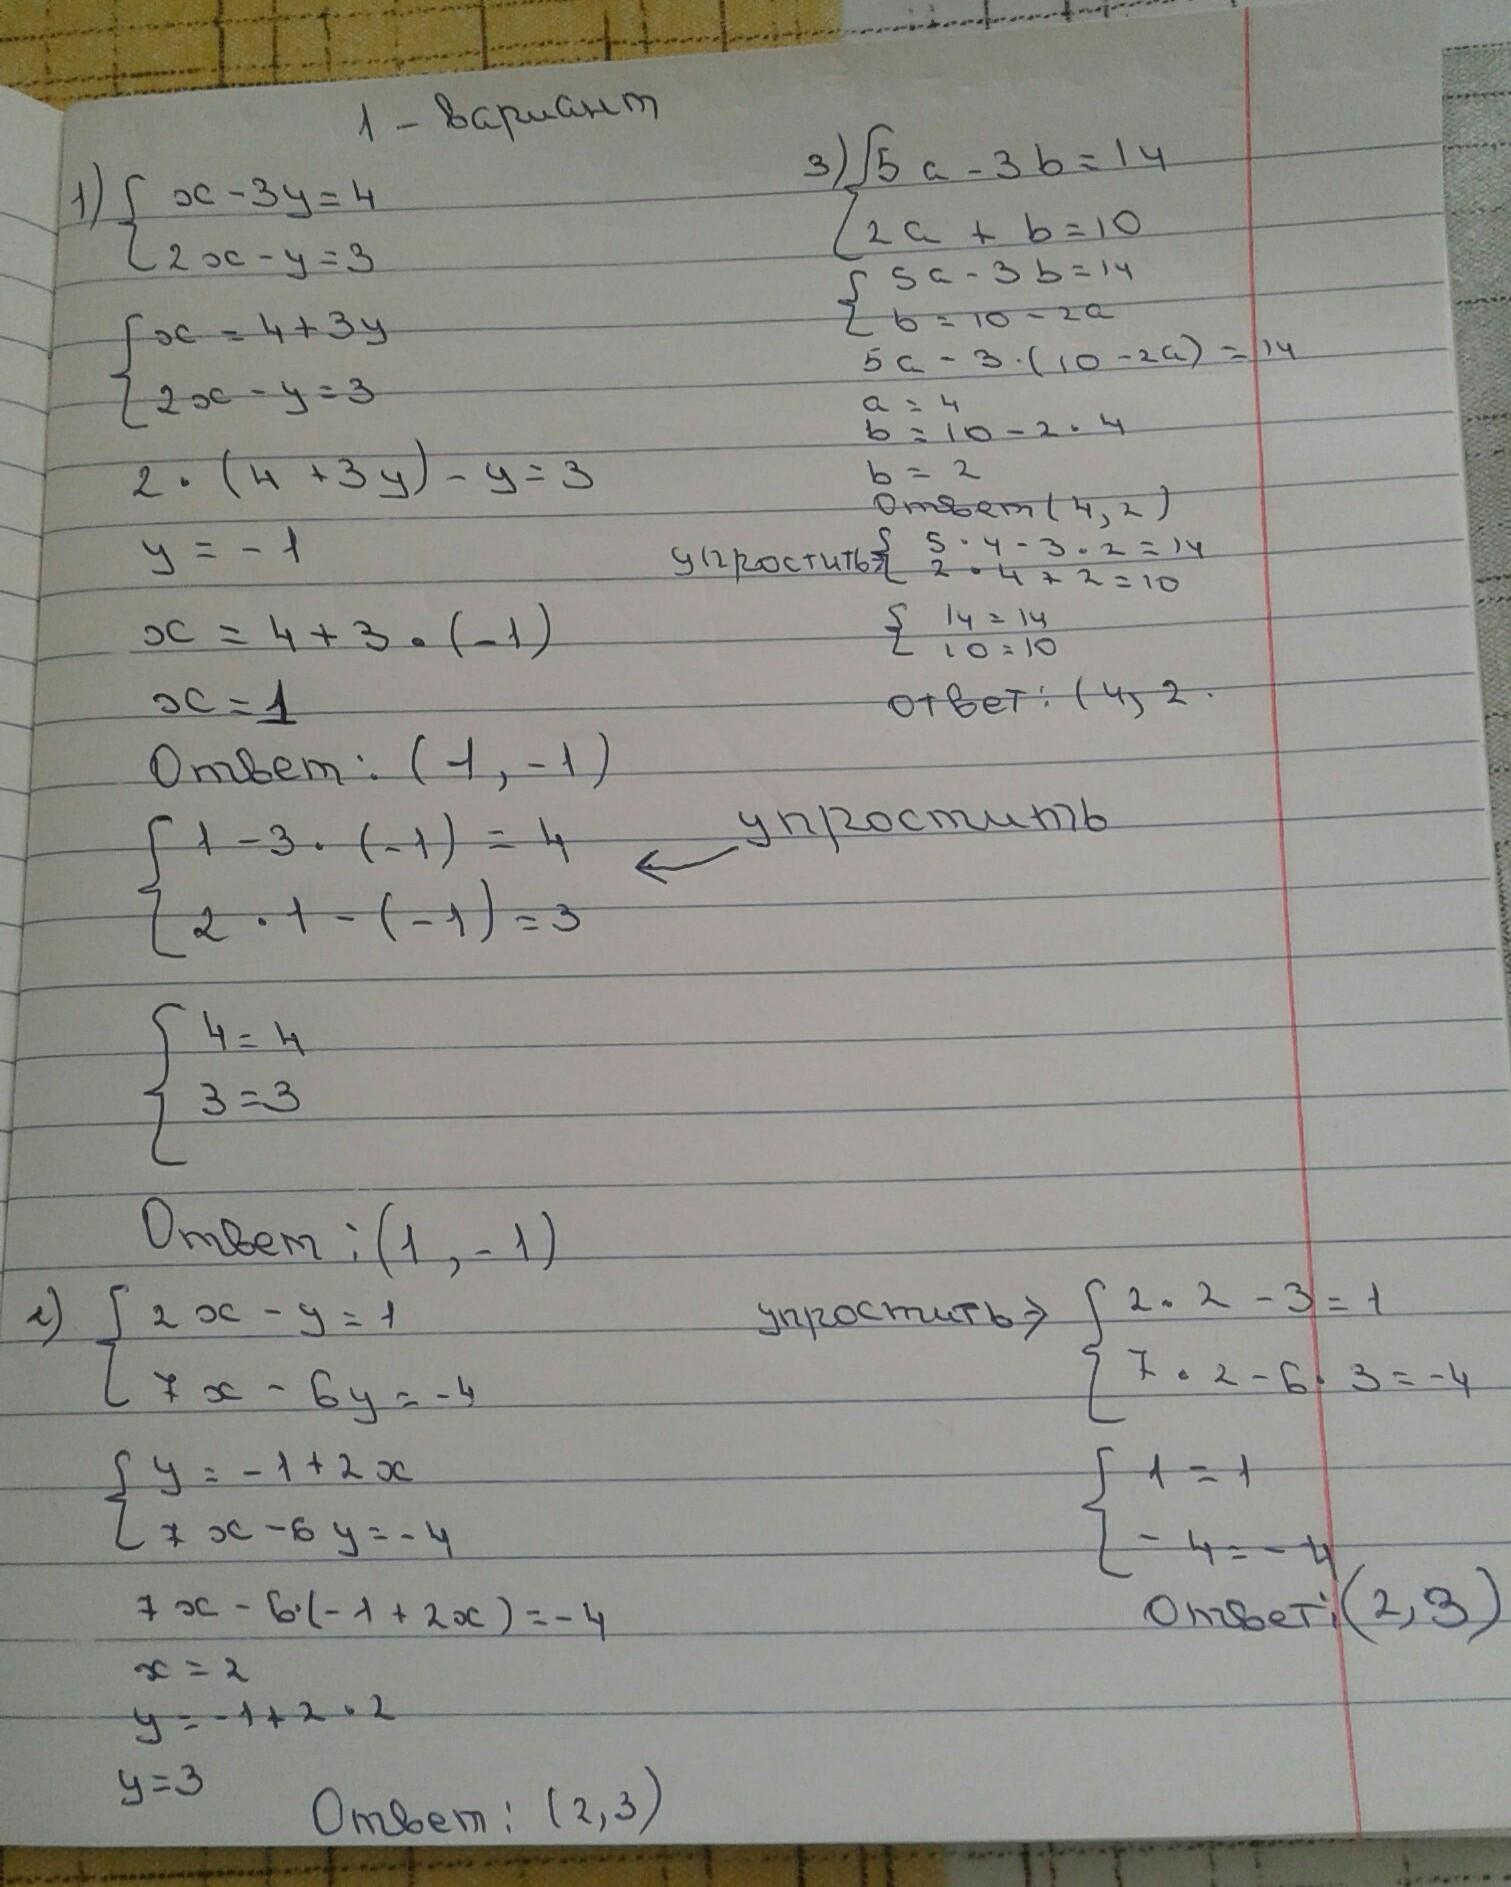 1 - Вариант
1) { x - 3y = 4
{ 2x - y = 3
{ x = 4 + 3y
{ 2x - y = 3
2 · (4 + 3y) - y = 3
y = -1
x = 4 + 3 · (-1)
x = 1
Ответ: (1, -1)
{ 1 - 3 · (-1) = 4 ← упростить
{ 2 · 1 - (-1) = 3
{ 4 = 4
{ 3 = 3
Ответ: (1, -1)
2) { 2x - y = 1
{ 7x - 6y = -4
{ y = -1 + 2x
{ 7x - 6y = -4
7x - 6·(-1 + 2x) = -4
x = 2
y = -1 + 2 · 2
y = 3
Ответ: (2, 3)
упростить → { 2 · 2 - 3 = 1
{ 7 · 2 - 6 · 3 = -4
{ 1 = 1
{ -4 = -4
Ответ: (2, 3)
3) { 5a - 3b = 14
{ 2a + b = 10
{ 5a - 3b = 14
{ b = 10 - 2a
5a - 3·(10 - 2a) = 14
a = 4
b = 10 - 2 · 4
b = 2
Ответ (4, 2)
упростить { 5 · 4 - 3 · 2 = 14
{ 2 · 4 + 2 = 10
{ 14 = 14
{ 10 = 10
ответ: (4, 2.